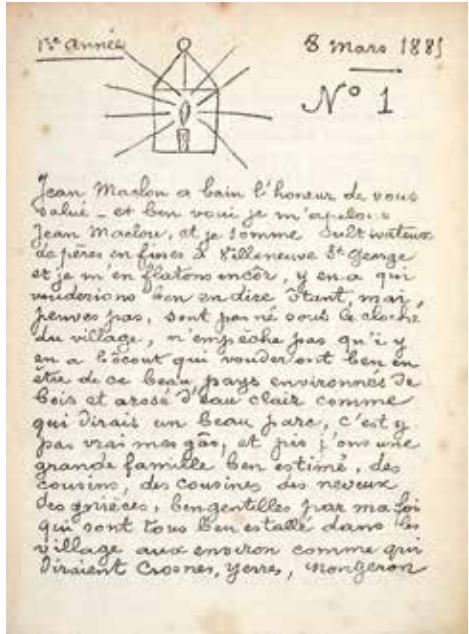 1re année
8 Mars 1885
No 1
Jean Maclou a bain l'honeur de vous
salué - et ben voui je m'apelons
Jean Maclou, et je somme Cultivateux
de pères en fines à Villeneuve St George
et je m'en flatons encôr, y en a qui
vouderions ben en dire ôtant, mai,
peuves pas, sont pas né sous le cloché
du village, n'empêche pas qu'i y
en a l'écout qui vouderont ben en
être de ce beau pays environnés de
bois et arosé d'eau clair comme
qui dirais un beau parc, c'est y
pas vrai mes gâs, et pis j'ons une
grande famille ben estimé, des
cousins, des cousines des neveux
des gnièces, ben gentilles par ma foi
qui sont tous ben estallé dans les
village aux environ comme qui
diraient Crosnes, Yerres, Mongeron